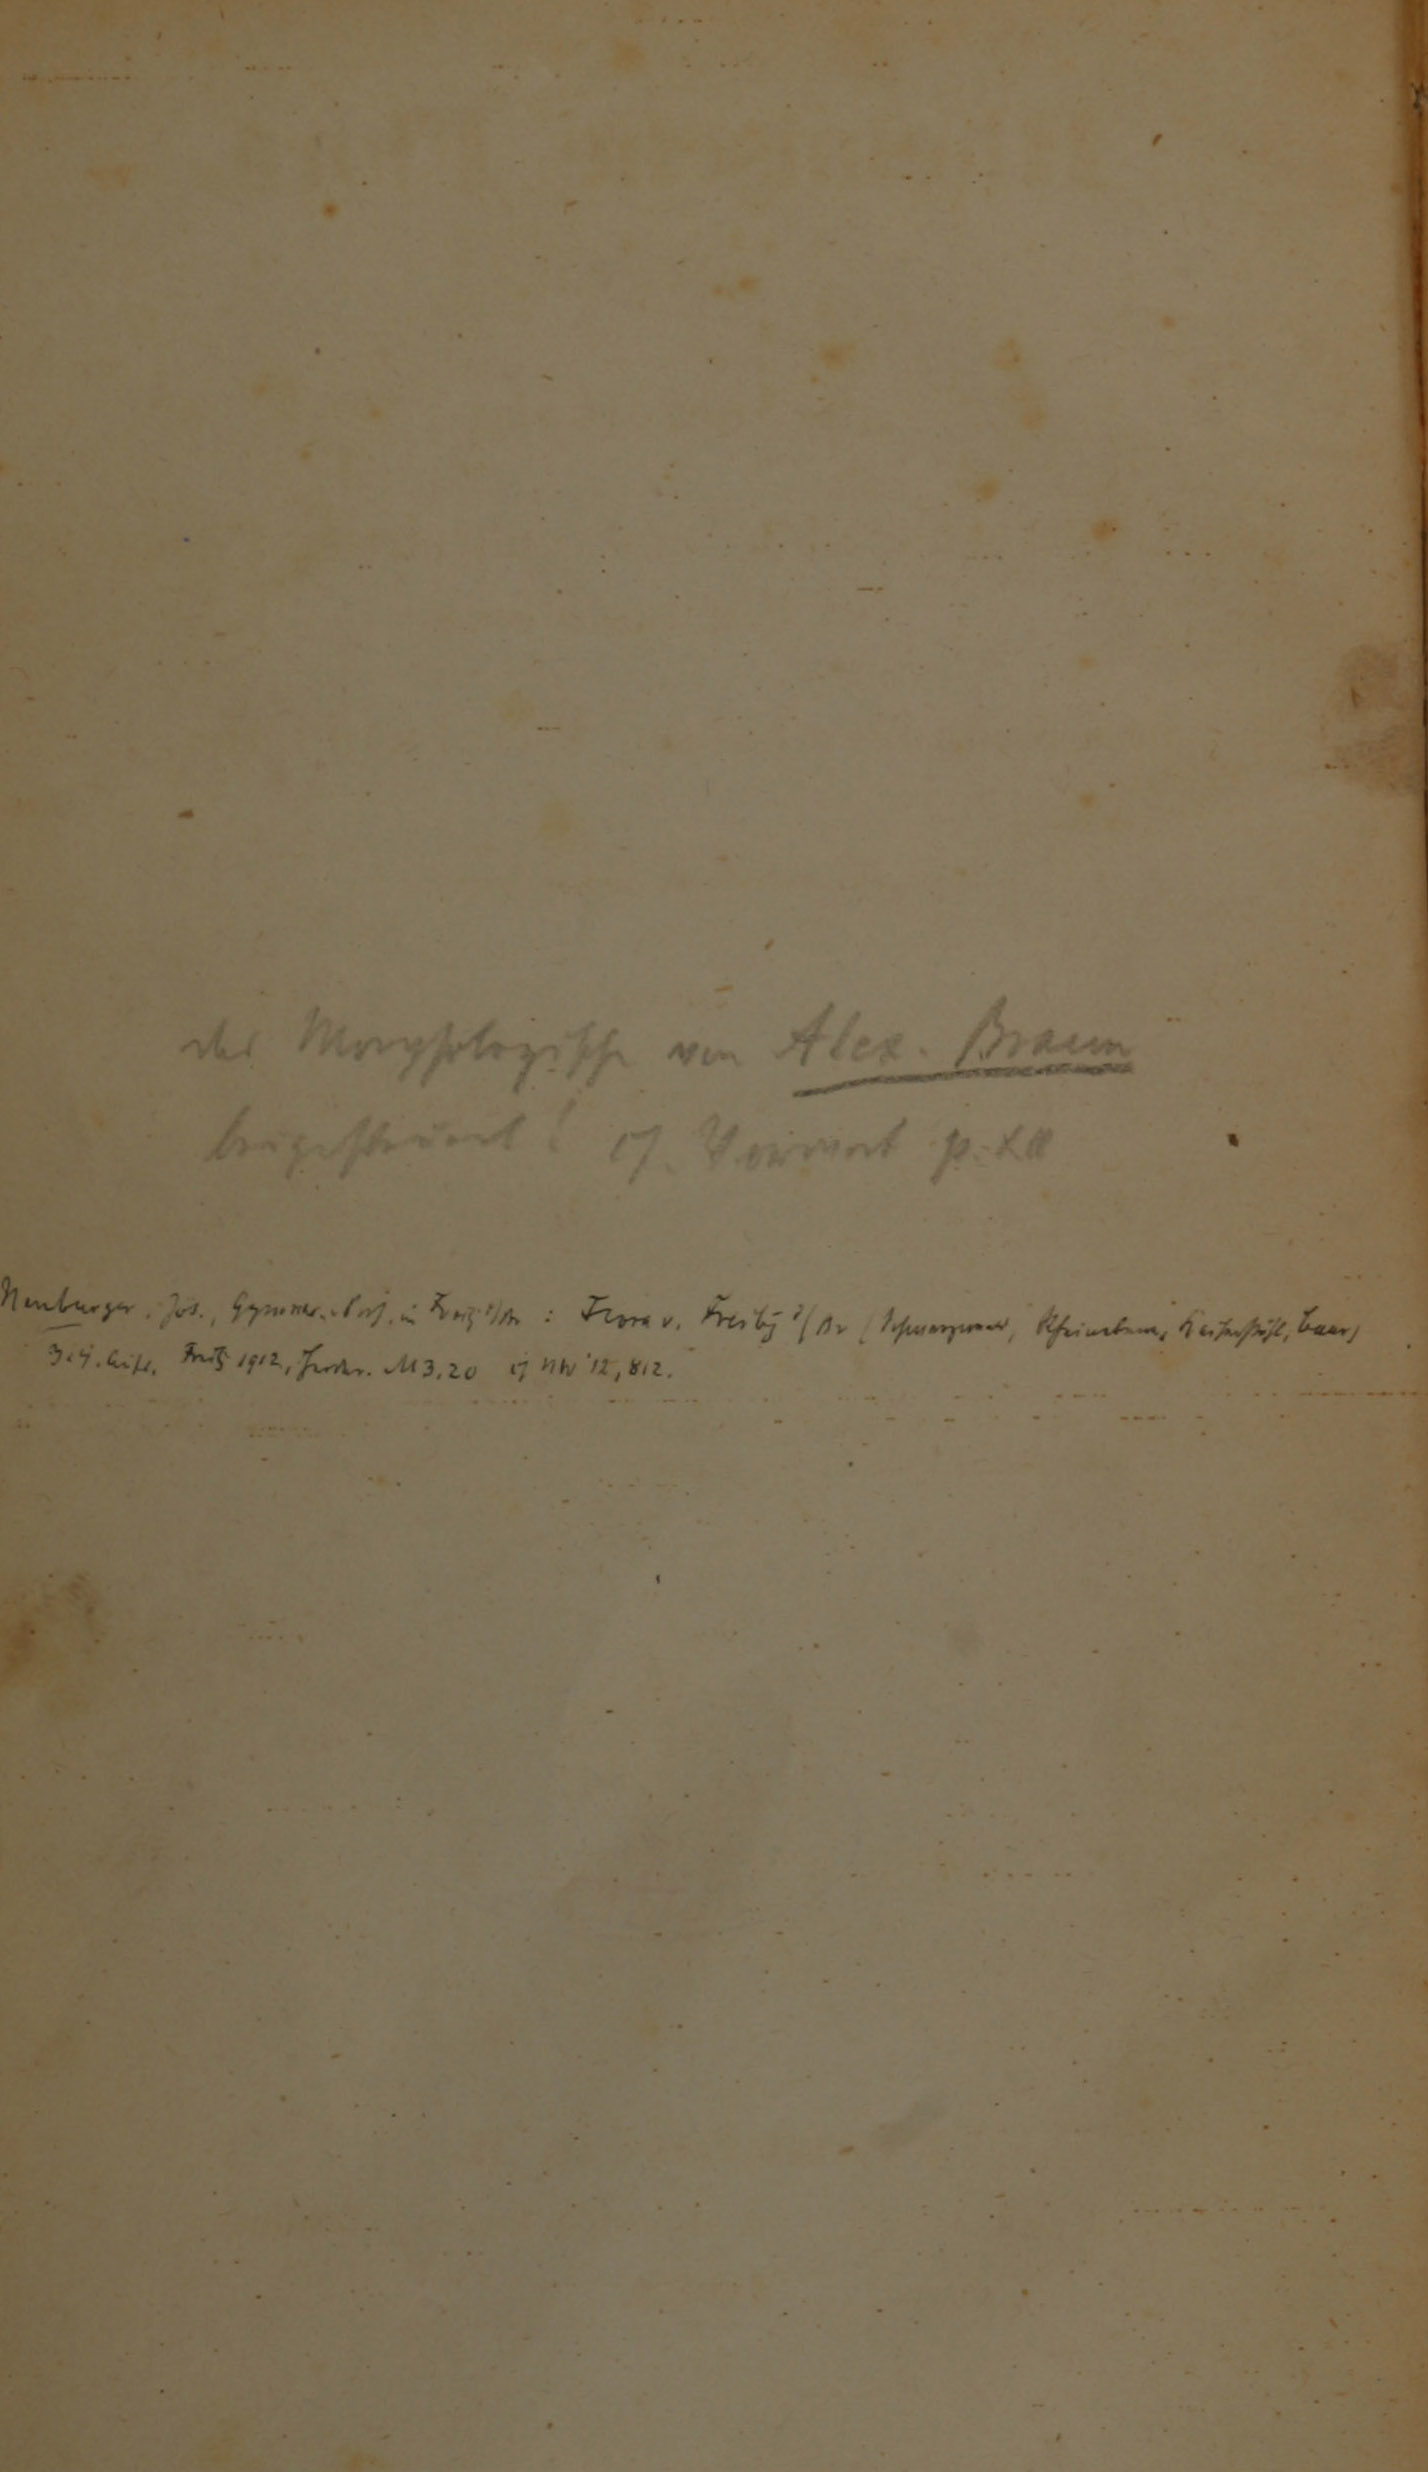 das Morphologische von Alex. Braun
beigesteuert! cf. Vorwort p. XII
Neuburger, Jos., Gymnas. Prof. in Freibg i/Br : Flora v. Freibg i/Br (Schwarzwald, Rheinebene, Kaiserstuhl, Baar)
3. u. 4. Aufl. Freibg 1912, Herder. M 3.20 cf NW '12, 812.